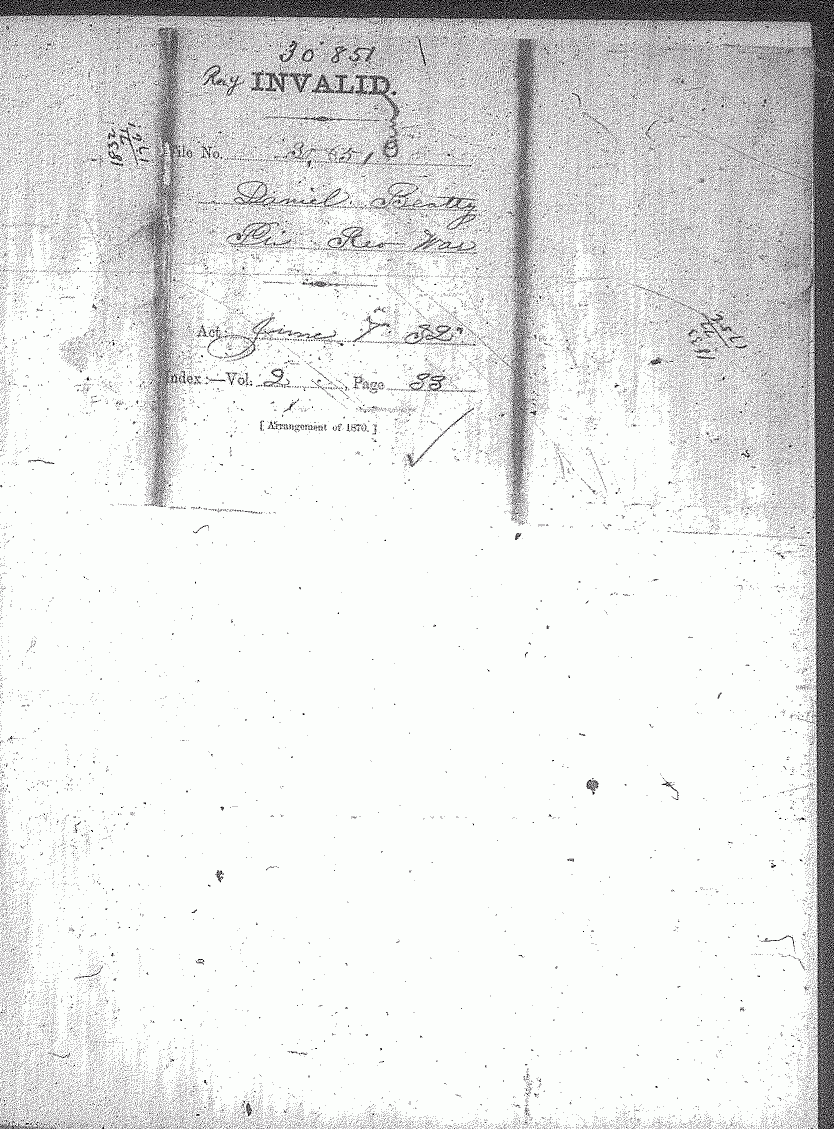 30 851
Ray INVALID.
File No. 3,651
8
Daniel Beatty
Pri Rev War
Act: June 7. 32"
Index:—Vol. 2 , Page 33
[ Arrangement of 1870. ]
1832
71
1761